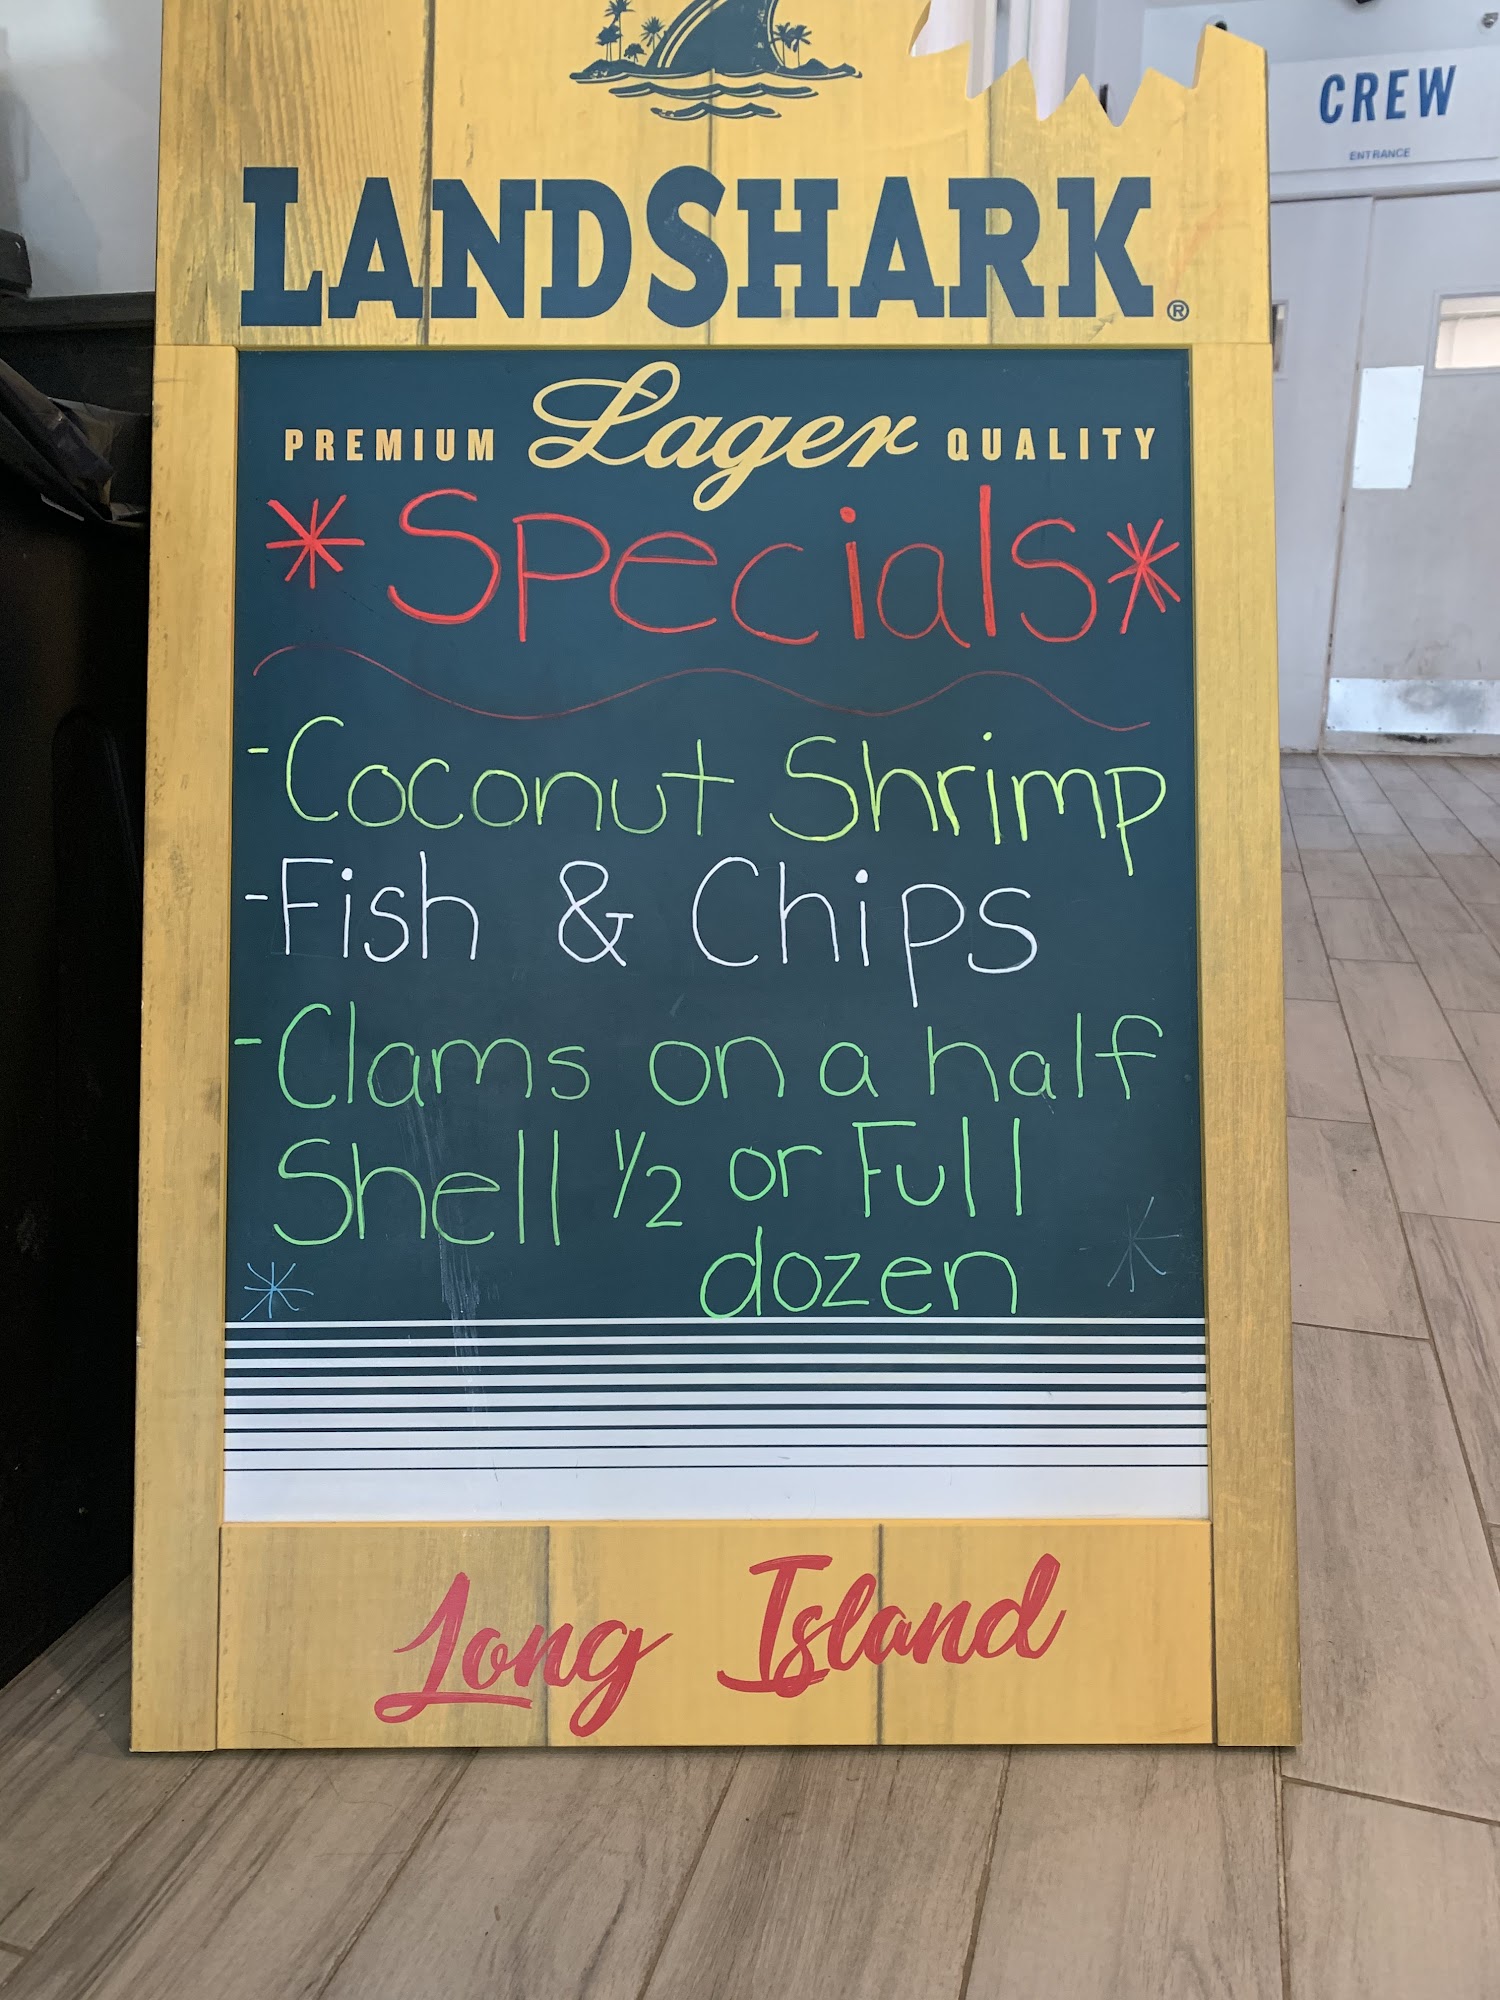 CREW
ENTRANCE
LANDSHARK®
PREMIUM Lager QUALITY
*Specials*
-Coconut Shrimp
-Fish & Chips
-Clams on a half
Shell ½ or Full
dozen
Long Island